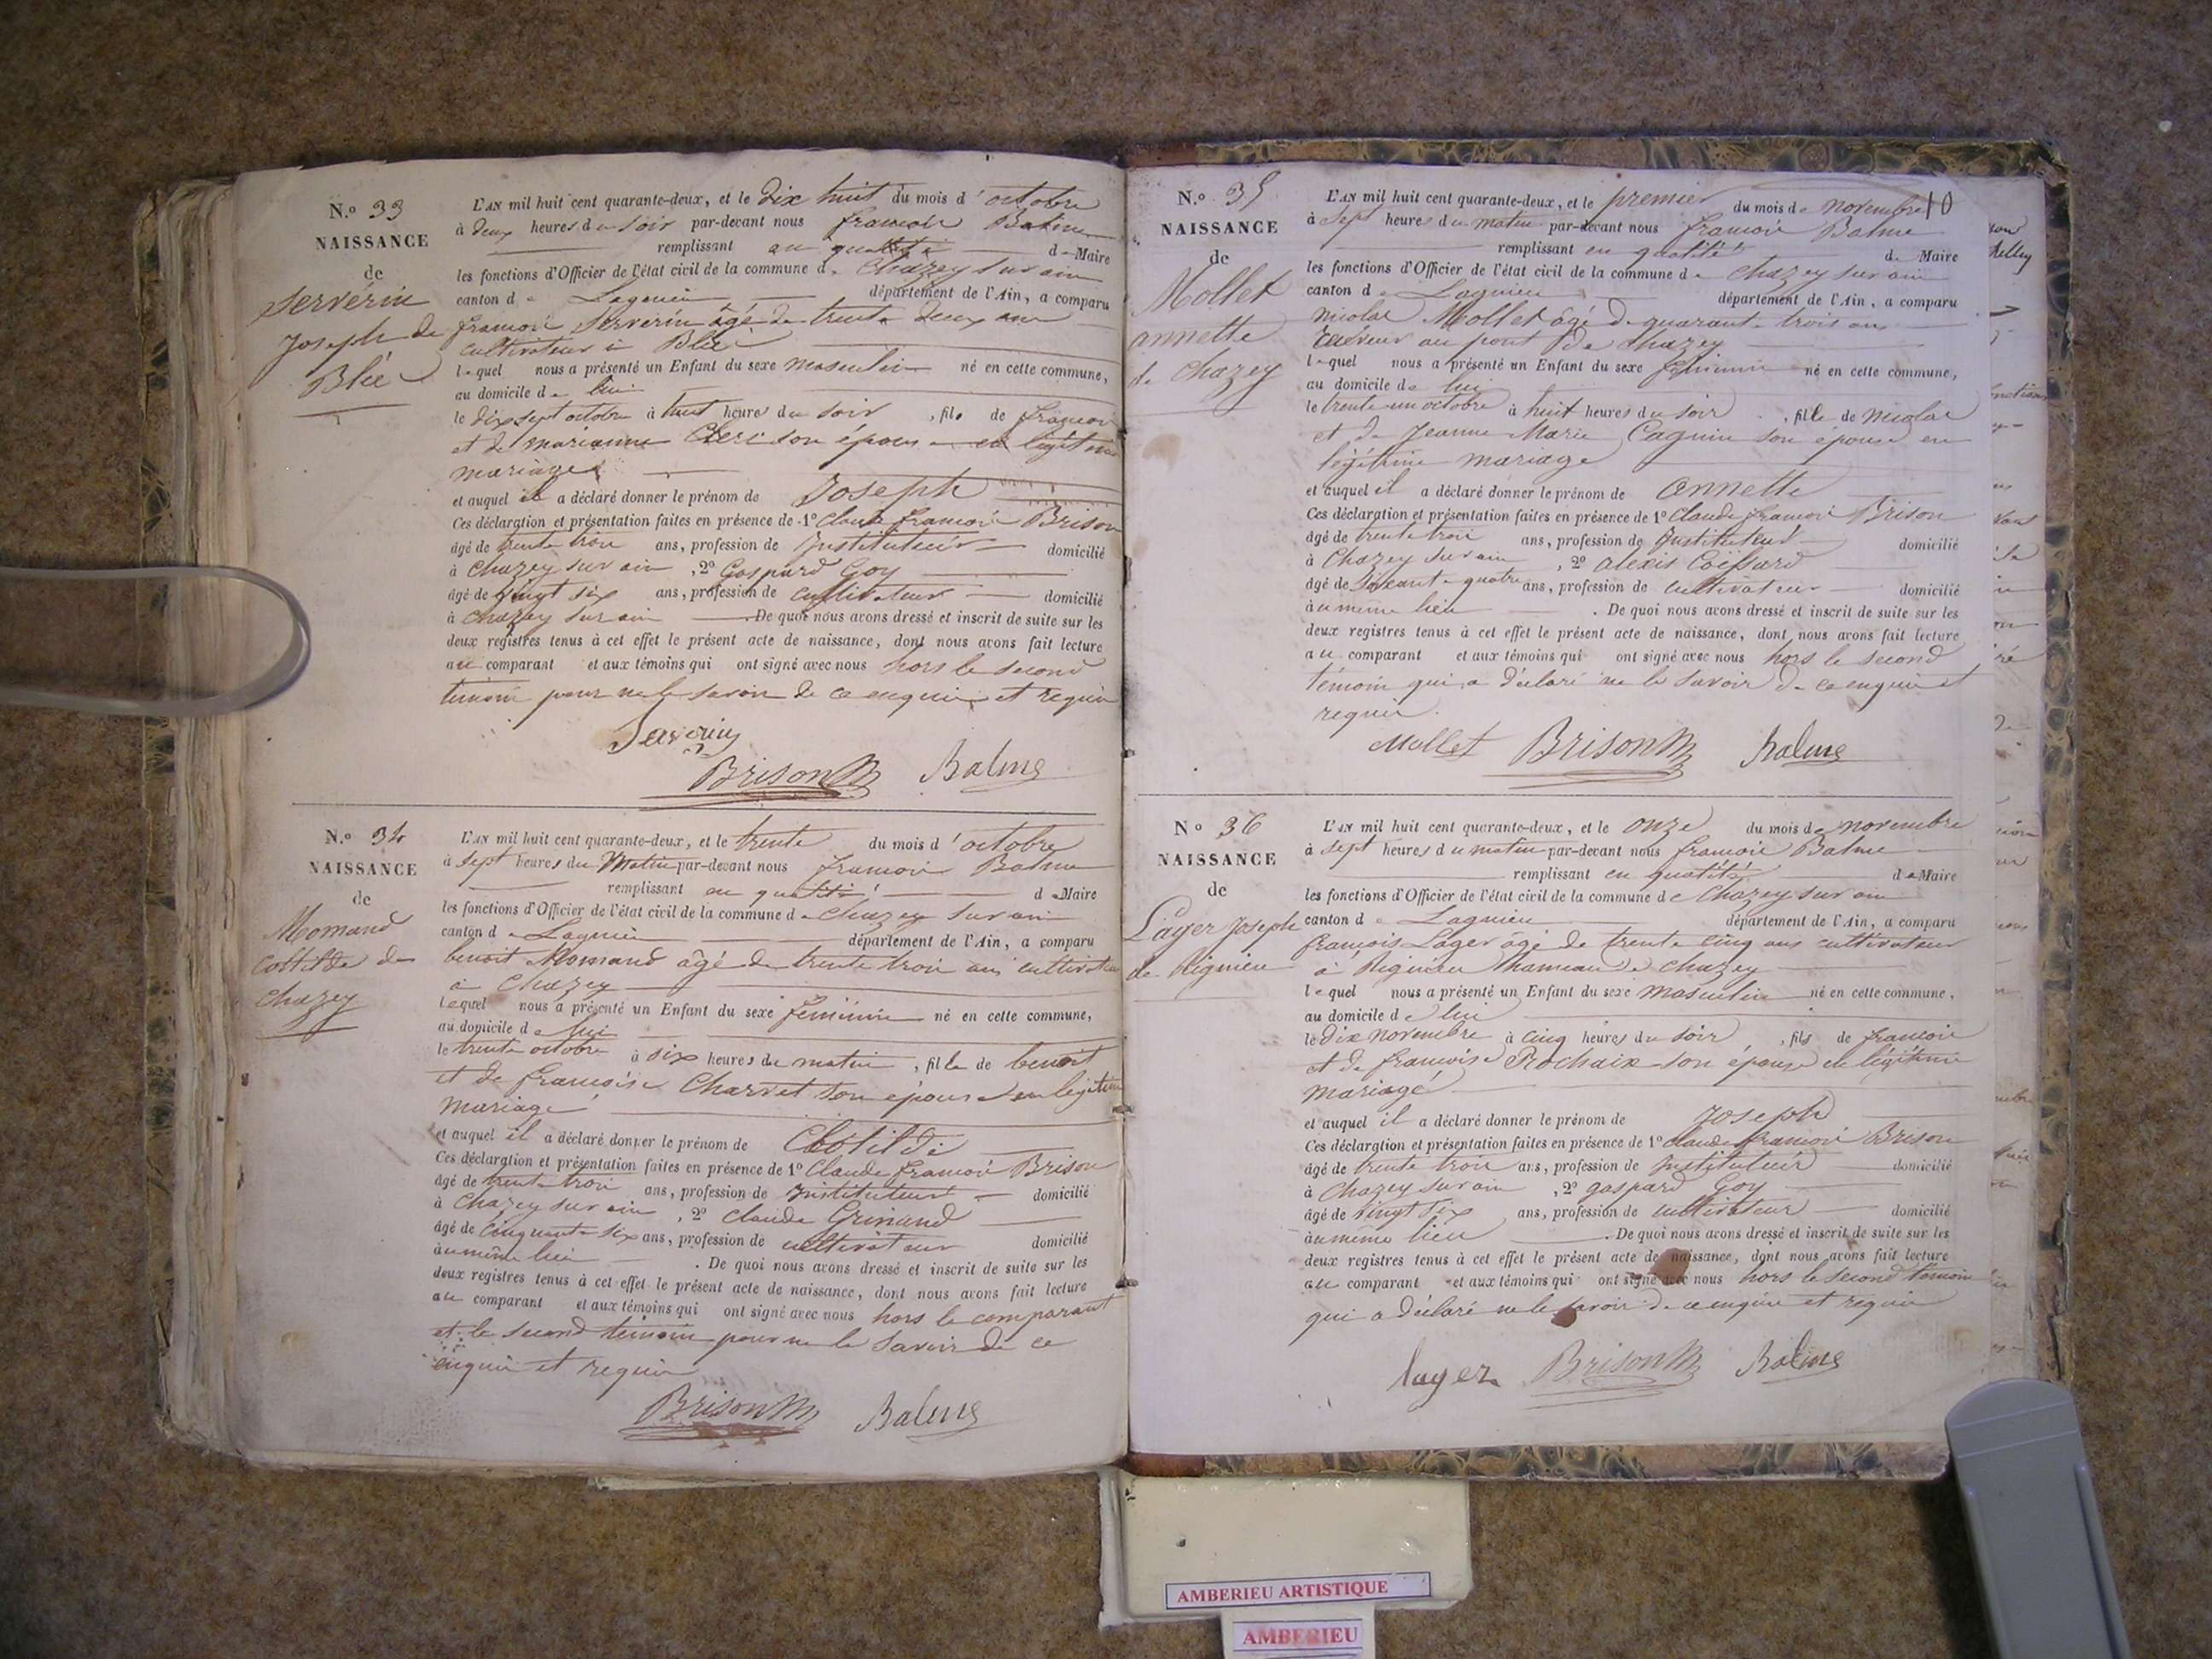 N.o 33
NAISSANCE
de
Servérin
Joseph de
Blié
L'AN mil huit cent quarante-deux, et le dix huit du mois d'octobre
à deux heures du soir par-devant nous françois Balme
remplissant en qualité de Maire
les fonctions d'Officier de l'état civil de la commune de Chazey sur ain
canton de Lagnieu département de l'Ain, a comparu
françois Servérin âgé de trente deux ans
cultivateur à Blié
lequel nous a présenté un Enfant du sexe masculin né en cette commune,
au domicile de lui
le dix sept octobre à huit heures du soir, fils de françois
et de marianne Clerc son épouse en légitime
mariage
et auquel il a déclaré donner le prénom de Joseph
Ces déclaration et présentation faites en présence de 1o Claude françois Brison
âgé de trente trois ans, profession de Instituteur domicilié
à Chazey sur ain, 2o Gaspard Goy
âgé de vingt six ans, profession de cultivateur domicilié
à chazey sur ain. De quoi nous avons dressé et inscrit de suite sur les
deux registres tenus à cet effet le présent acte de naissance, dont nous avons fait lecture
au comparant et aux témoins qui ont signé avec nous hors le second
témoin pour ne le savoir de ce enquis et requis
Severin
Brison Balme
N.o 34
NAISSANCE
de
Momand
Cottilde de
Chazey
L'AN mil huit cent quarante-deux, et le trente du mois d'octobre
à sept heures du Matin par-devant nous françois Balme
remplissant en qualité de Maire
les fonctions d'Officier de l'état civil de la commune de Chazey sur ain
canton de Lagnieu département de l'Ain, a comparu
benoit Momand âgé de trente trois ans cultivateur
à Chazey
lequel nous a présenté un Enfant du sexe féminin né en cette commune,
au domicile de lui
le trente octobre à six heures du matin, fille de benoit
et de françoise Charvet son épouse en légitime
mariage
et auquel il a déclaré donner le prénom de Clotilde
Ces déclaration et présentation faites en présence de 1o Claude françois Brison
âgé de trente trois ans, profession de Instituteur domicilié
à Chazey sur ain, 2o Claude Grinand
âgé de Cinquante six ans, profession de cultivateur domicilié
au même lieu. De quoi nous avons dressé et inscrit de suite sur les
deux registres tenus à cet effet le présent acte de naissance, dont nous avons fait lecture
au comparant et aux témoins qui ont signé avec nous hors le comparant
et le second témoin pour ne le savoir de ce
enquis et requis
Brison Balme
10
N.o 35
NAISSANCE
de
Mollet
annette
de Chazey
L'AN mil huit cent quarante-deux, et le premier du mois de novembre
à sept heures du matin par-devant nous françois Balme
remplissant en qualité de Maire
les fonctions d'Officier de l'état civil de la commune de Chazey sur ain
canton de Lagnieu département de l'Ain, a comparu
nicolas Mollet âgé de quarante trois ans
au pont de Chazey
lequel nous a présenté un Enfant du sexe féminin né en cette commune,
au domicile de lui
le trente un octobre à huit heures du soir, fille de nicolas
et de Jeanne Marie Cagnin son épouse en
légitime mariage
et auquel il a déclaré donner le prénom de Annette
Ces déclaration et présentation faites en présence de 1o Claude françois Brison
âgé de trente trois ans, profession de Instituteur domicilié
à Chazey sur ain, 2o alexis Coiffard
âgé de soixante quatre ans, profession de cultivateur domicilié
au même lieu. De quoi nous avons dressé et inscrit de suite sur les
deux registres tenus à cet effet le présent acte de naissance, dont nous avons fait lecture
au comparant et aux témoins qui ont signé avec nous hors le second
témoin qui a déclaré ne le savoir de ce enquis et
requis
Mollet Brison Balme
No 36
NAISSANCE
de
Layer Joseph
de Rignieu
L'AN mil huit cent quarante-deux, et le onze du mois de novembre
à sept heures du matin par-devant nous françois Balme
remplissant en qualité de Maire
les fonctions d'Officier de l'état civil de la commune de Chazey sur ain
canton de Lagnieu département de l'Ain, a comparu
françois Layer âgé de trente cinq ans cultivateur
à Rignieu hameau de Chazey
lequel nous a présenté un Enfant du sexe masculin né en cette commune,
au domicile de lui
le dix novembre à cinq heures du soir, fils de françois
et de françoise Prochaix son épouse en légitime
mariage
et auquel il a déclaré donner le prénom de Joseph
Ces déclaration et présentation faites en présence de 1o Claude françois Brison
âgé de trente trois ans, profession de Instituteur domicilié
à Chazey sur ain, 2o gaspard Goy
âgé de vingt six ans, profession de cultivateur domicilié
au même lieu. De quoi nous avons dressé et inscrit de suite sur les
deux registres tenus à cet effet le présent acte de naissance, dont nous avons fait lecture
au comparant et aux témoins qui ont signé avec nous hors le second témoin
qui a déclaré ne le savoir de ce enquis et requis
layer Brison Balme
AMBERIEU ARTISTIQUE
AMBERIEU